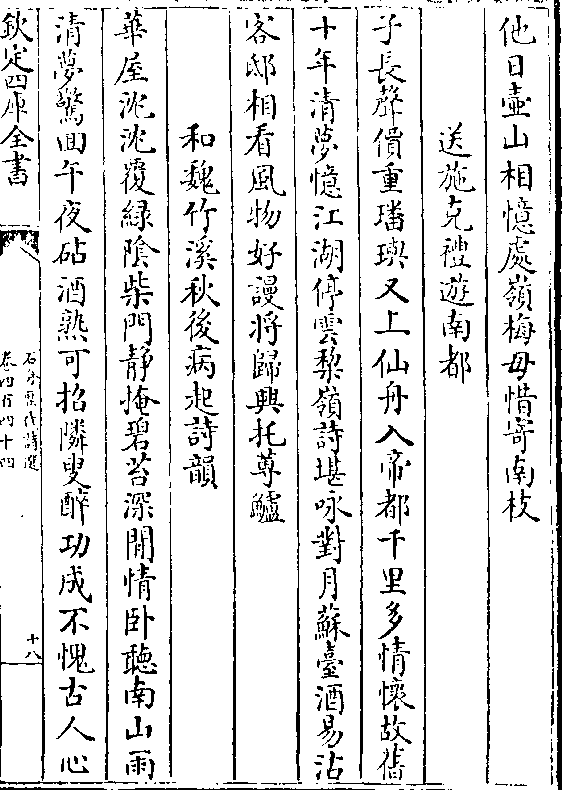 他日壺山相憶處嶺梅毋惜寄南枝
送施克禮遊南都
子長聲價重璠璵又上仙舟入帝都千里多情懷故舊
十年清夢憶江湖停雲梨嶺詩堪咏對月蘇臺酒易沽
客邸相看風物好謾將歸興托蓴鱸
和魏竹溪秋後病起詩韻
華屋沈沈覆綠隂柴門靜掩碧苔深閒情卧聽南山雨
清夢驚回午夜砧酒熟可招隣叟醉功成不愧古人心
欽定四庫全書
石倉歷代詩選
卷四百四十四
十八